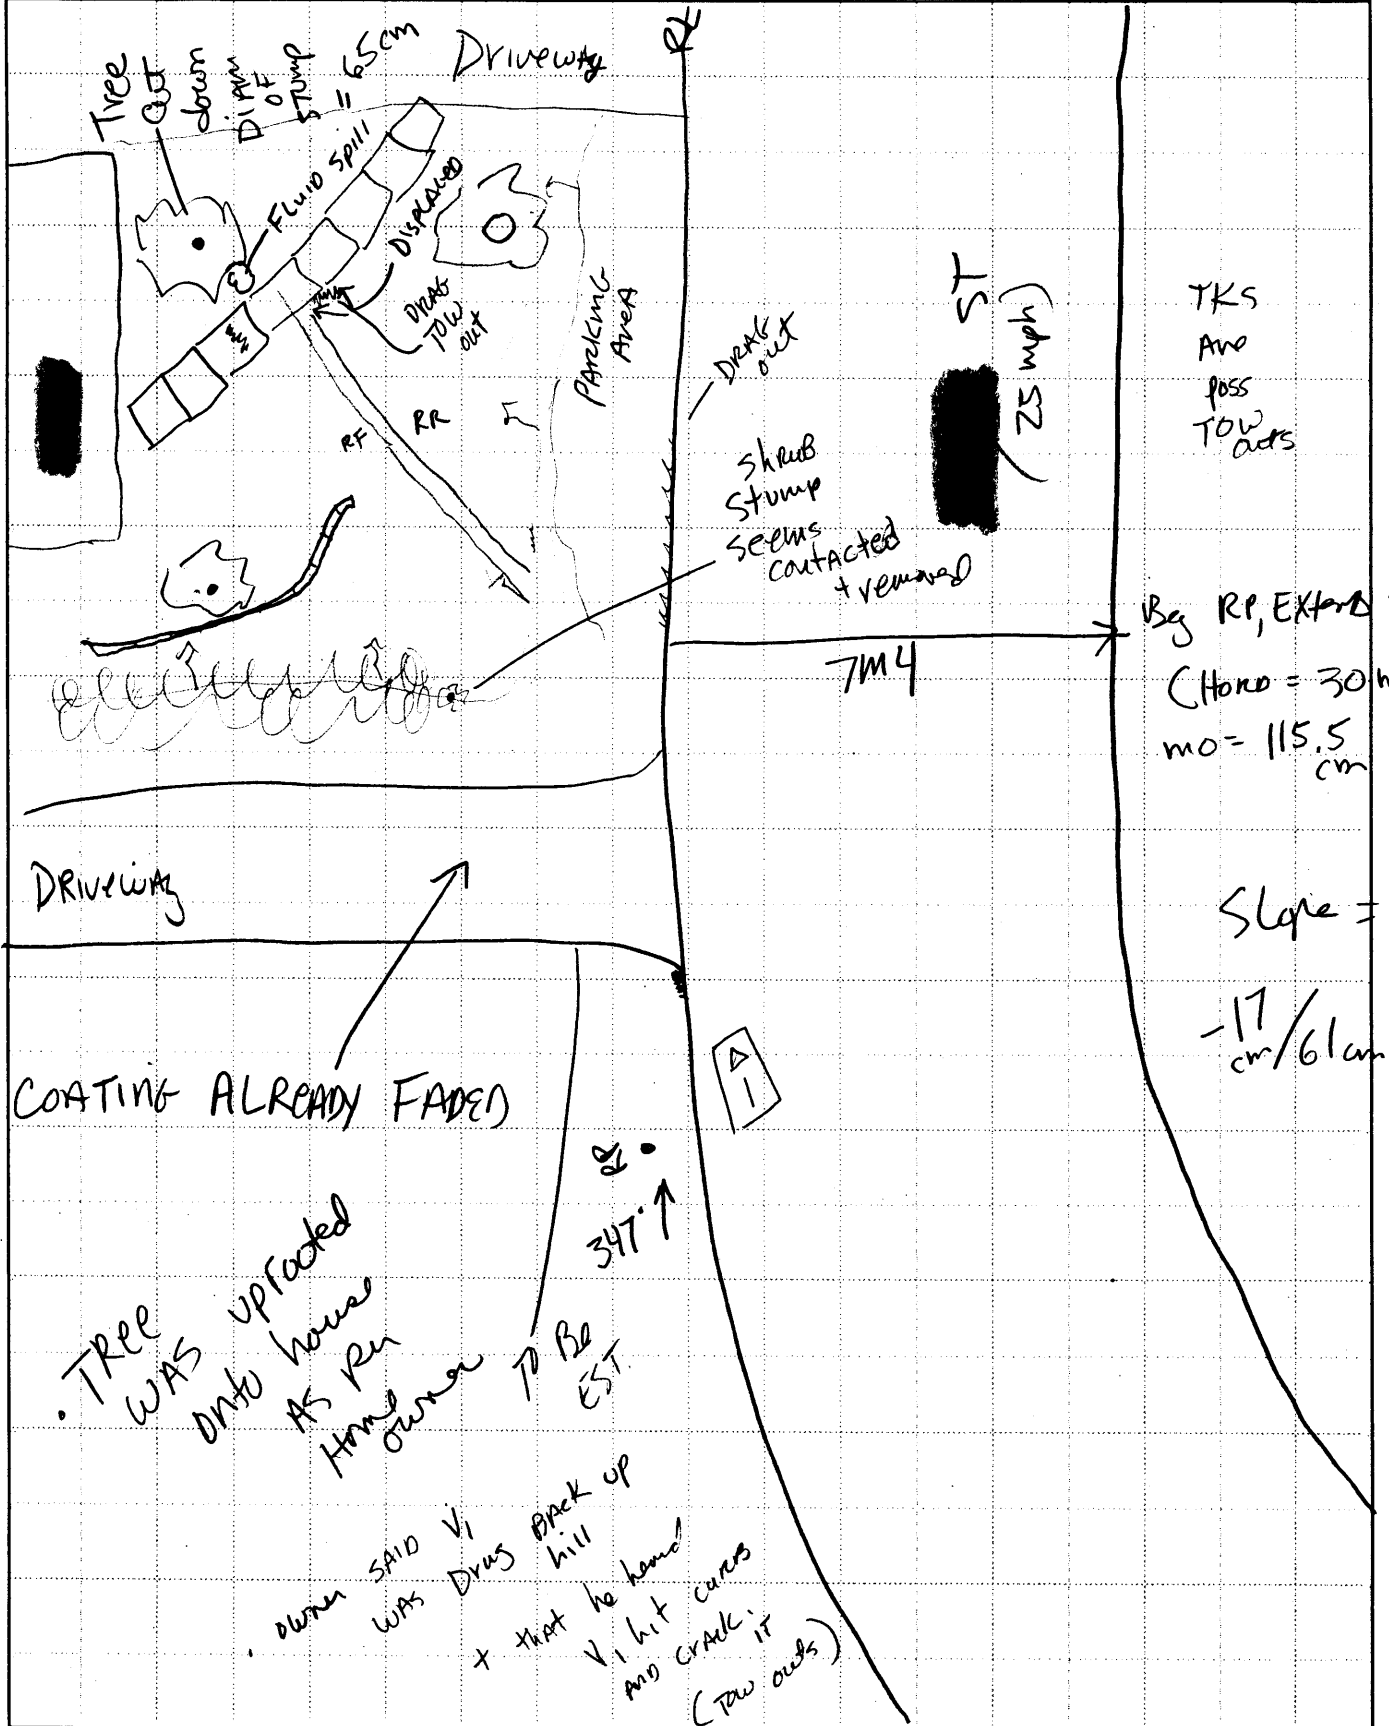 Tree
cut
down
DIAM
OF
STUMP
= 65cm
Driveway
FLUID Spill
DISPLACED
DRAG
TOW
out
PARKING
AreA
RF
RR
DRAG
out
ST
(25 mph)
TKS
Are
poss
TOW
outs
shRuB
stump
seems
contacted
+ removed
7M4
Beg RP, EXtend
CHord = 30
mo = 115.5
cm
DRiveway
Slope =
-17
cm/61cm
COATING ALREADY FADED
1
RP
347°
TO Be
EST.
. TRee
WAS uprooted
onto house
AS per
Home
owner
. owner SAID V1
WAS Drug BAck up
hill
+ thAt he heard
V1 hit curb
AND crAck
IT.
(TOW outs)